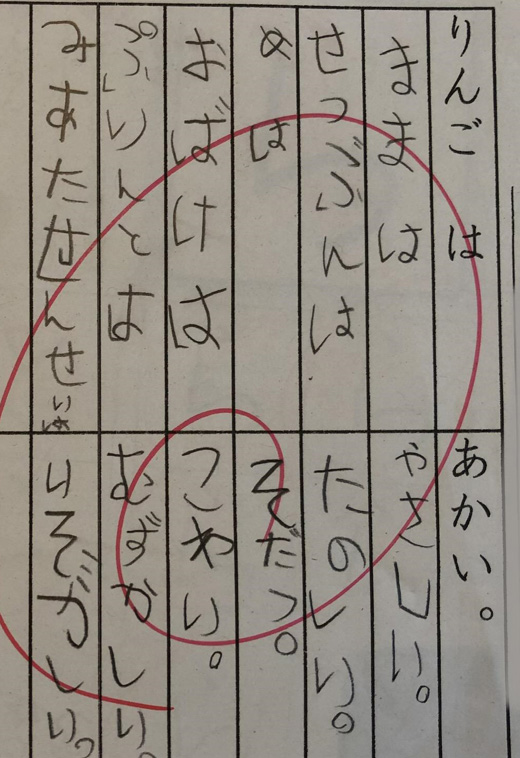 りんご は あかい。
まま は やさしい。
せつぶんは たのしい。
め は そだつ。
おばけは こわい。
ぷりんとは むずかしい。
せんせいは いそがしい。